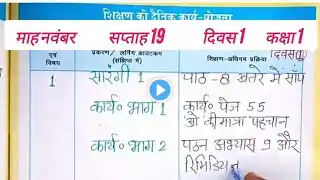 शिक्षण की दैनिक कार्य-योजना
माहनवंबर सप्ताह19 दिवस1 कक्षा1
प्रकरण/ लर्निंग आउटकम
(संक्षिप्त में)
शिक्षण-अधिगम प्रक्रिया
(दिवस1)
एवं
विषय
1 सारंगी 1 पाठ-8 अतेर में साँप
कार्य॰ भाग 1 कार्य॰ पेज 55
ओ की मात्रा पहचान
कार्य॰ भाग 2 पठन अभ्यास 9 और
रिमिडियन